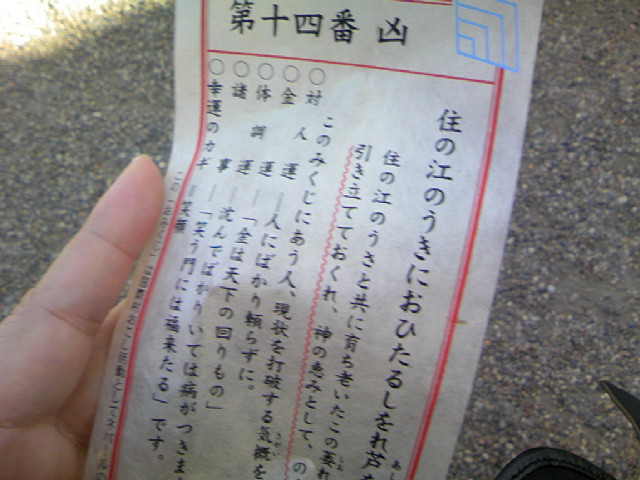 第十四番 凶
住の江のうきにおひたるしをれ芦
住の江のうさと共に育ち老いたこの萎れ
引き立てておくれ、神の恵みとして、の
このみくじにあう人、現状を打破する気概を
○対人運＝人にばかり頼らずに。
○金運＝「金は天下の回りもの」
○体調運＝沈んでばかりいては病がつきま
○諸事＝「笑う門には福来たる」です。
○幸運のカギ＝笑顔